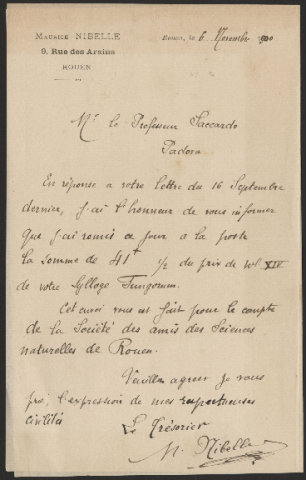 MAURICE NIBELLE
9. Rue des Arsins
ROUEN
Rouen, le 6 Novembre 1900
Mr le Professeur Saccardo
Padova
En réponse a votre lettre du 16 Septembre
dernier, j'ai l'honneur de vous informer
que j'ai remis ce jour a la poste
la somme de 41f 1/2 du prix de vol XIV
de votre Sylloge Fungorum.
Cet envoi vous est fait pour le compte
de la Société des amis des Sciences
naturelles de Rouen.
Veuillez agreer je vous
prie, l'expression de mes respectueuses
civilités
Le Trésorier
M. Nibelle